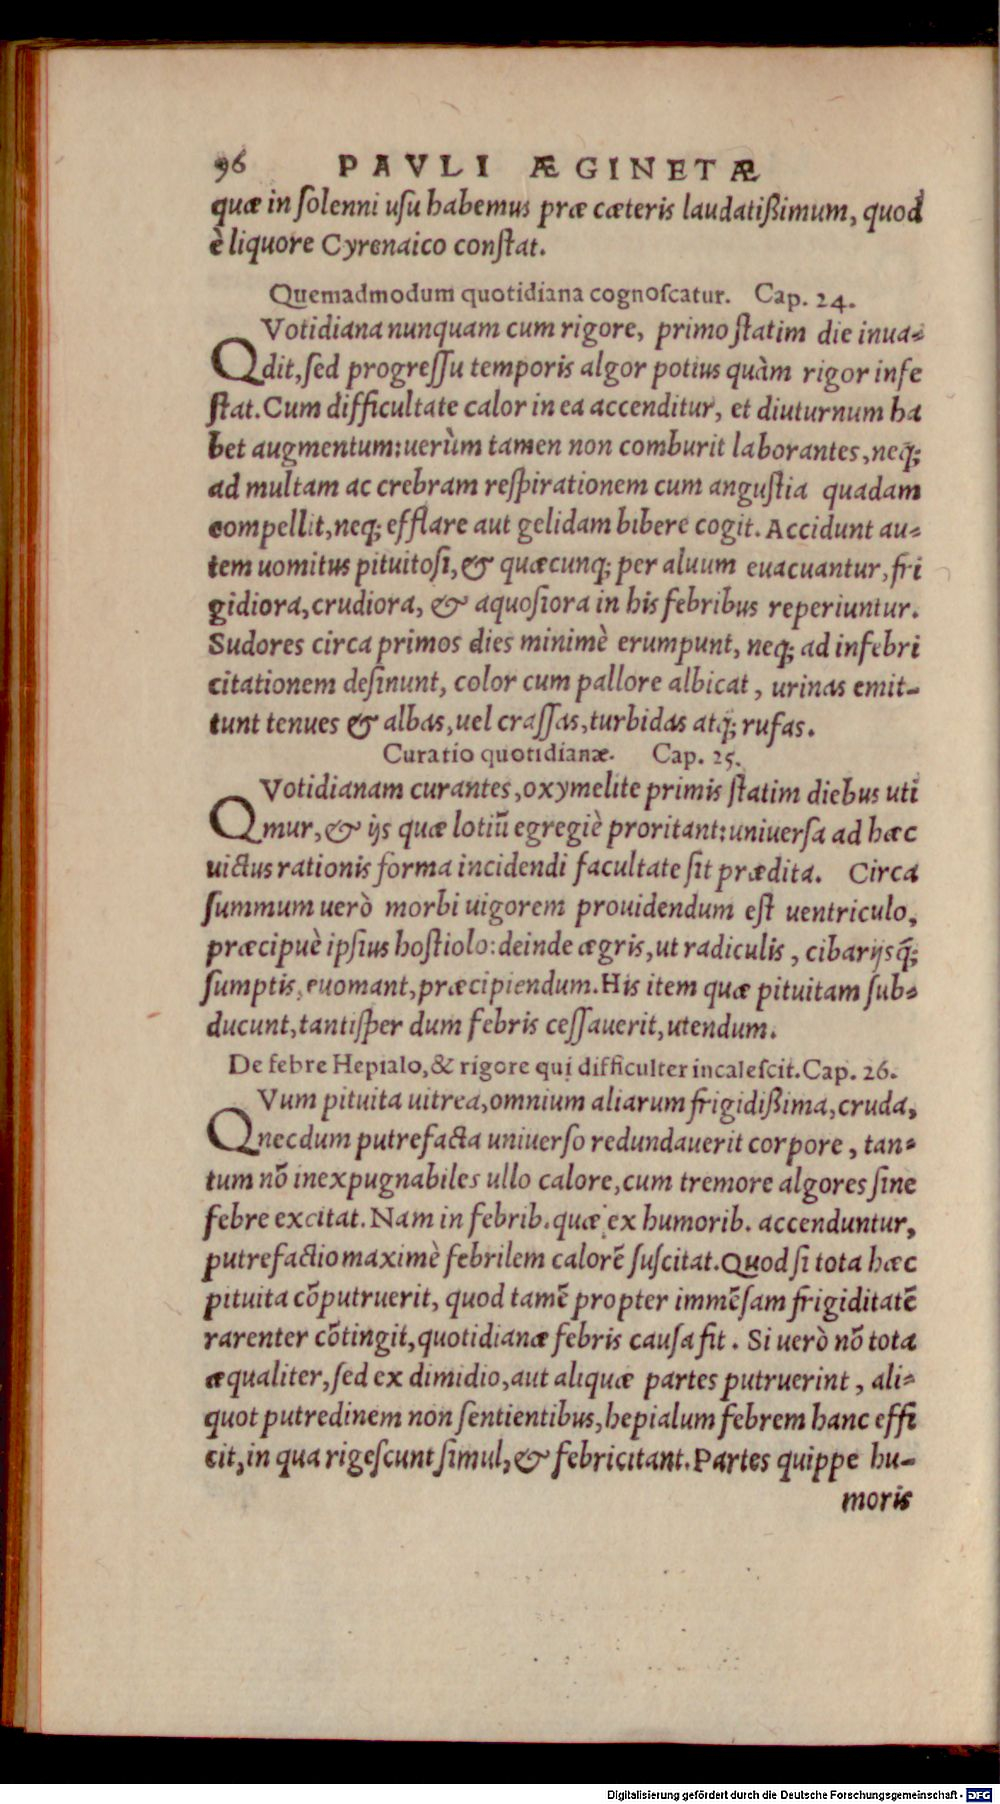 96 PAVLI ÆGINETÆ
quæ in ſolenni uſu habemus præ cæteris laudatißimum, quod
è liquore Cyrenaico conſtat.
Quemadmodum quotidiana cognoſcatur. Cap. 24.
QVotidiana nunquam cum rigore, primo ſtatim die inua-
dit, ſed progreſſu temporis algor potius quàm rigor infe
ſtat. Cum difficultate calor in ea accenditur, et diuturnum ha
bet augmentum: uerùm tamen non comburit laborantes, neq;
ad multam ac crebram reſpirationem cum anguſtia quadam
compellit, neq; efflare aut gelidam bibere cogit. Accidunt au-
tem uomitus pituitoſi, & quæcunq; per aluum euacuantur, fri
gidiora, crudiora, & aquoſiora in his febribus reperiuntur.
Sudores circa primos dies minimè erumpunt, neq; ad infebri
citationem deſinunt, color cum pallore albicat, urinas emit-
tunt tenues & albas, uel craſſas, turbidas atq; rufas.
Curatio quotidianæ. Cap. 25.
QVotidianam curantes, oxymelite primis ſtatim diebus uti
mur, & ijs quæ lotiū egregiè proritant: uniuerſa ad hæc
uictus rationis forma incidendi facultate ſit prædita. Circa
ſummum uerò morbi uigorem prouidendum eſt uentriculo,
præcipuè ipſius hoſtiolo: deinde ægris, ut radiculis, cibarijsq́;
ſumptis, euomant, præcipiendum. His item quæ pituitam ſub-
ducunt, tantiſper dum febris ceſſauerit, utendum.
De febre Hepialo, & rigore qui difficulter incaleſcit. Cap. 26.
QVum pituita uitrea, omnium aliarum frigidißima, cruda,
necdum putrefacta uniuerſo redundauerit corpore, tan-
tum nō inexpugnabiles ullo calore, cum tremore algores ſine
febre excitat. Nam in febrib. quæ ex humorib. accenduntur,
putrefactio maximè febrilem calorē ſuſcitat. Quod ſi tota hæc
pituita cōputruerit, quod tamē propter immēſam frigiditatē
rarenter cōtingit, quotidianæ febris cauſa fit. Si uerò nō tota
æqualiter, ſed ex dimidio, aut aliquæ partes putruerint, ali-
quot putredinem non ſentientibus, hepialum febrem hanc effi
cit, in qua rigeſcunt ſimul, & febricitant. Partes quippe hu-
moris
Digitalisierung gefördert durch die Deutsche Forschungsgemeinschaft - DFG